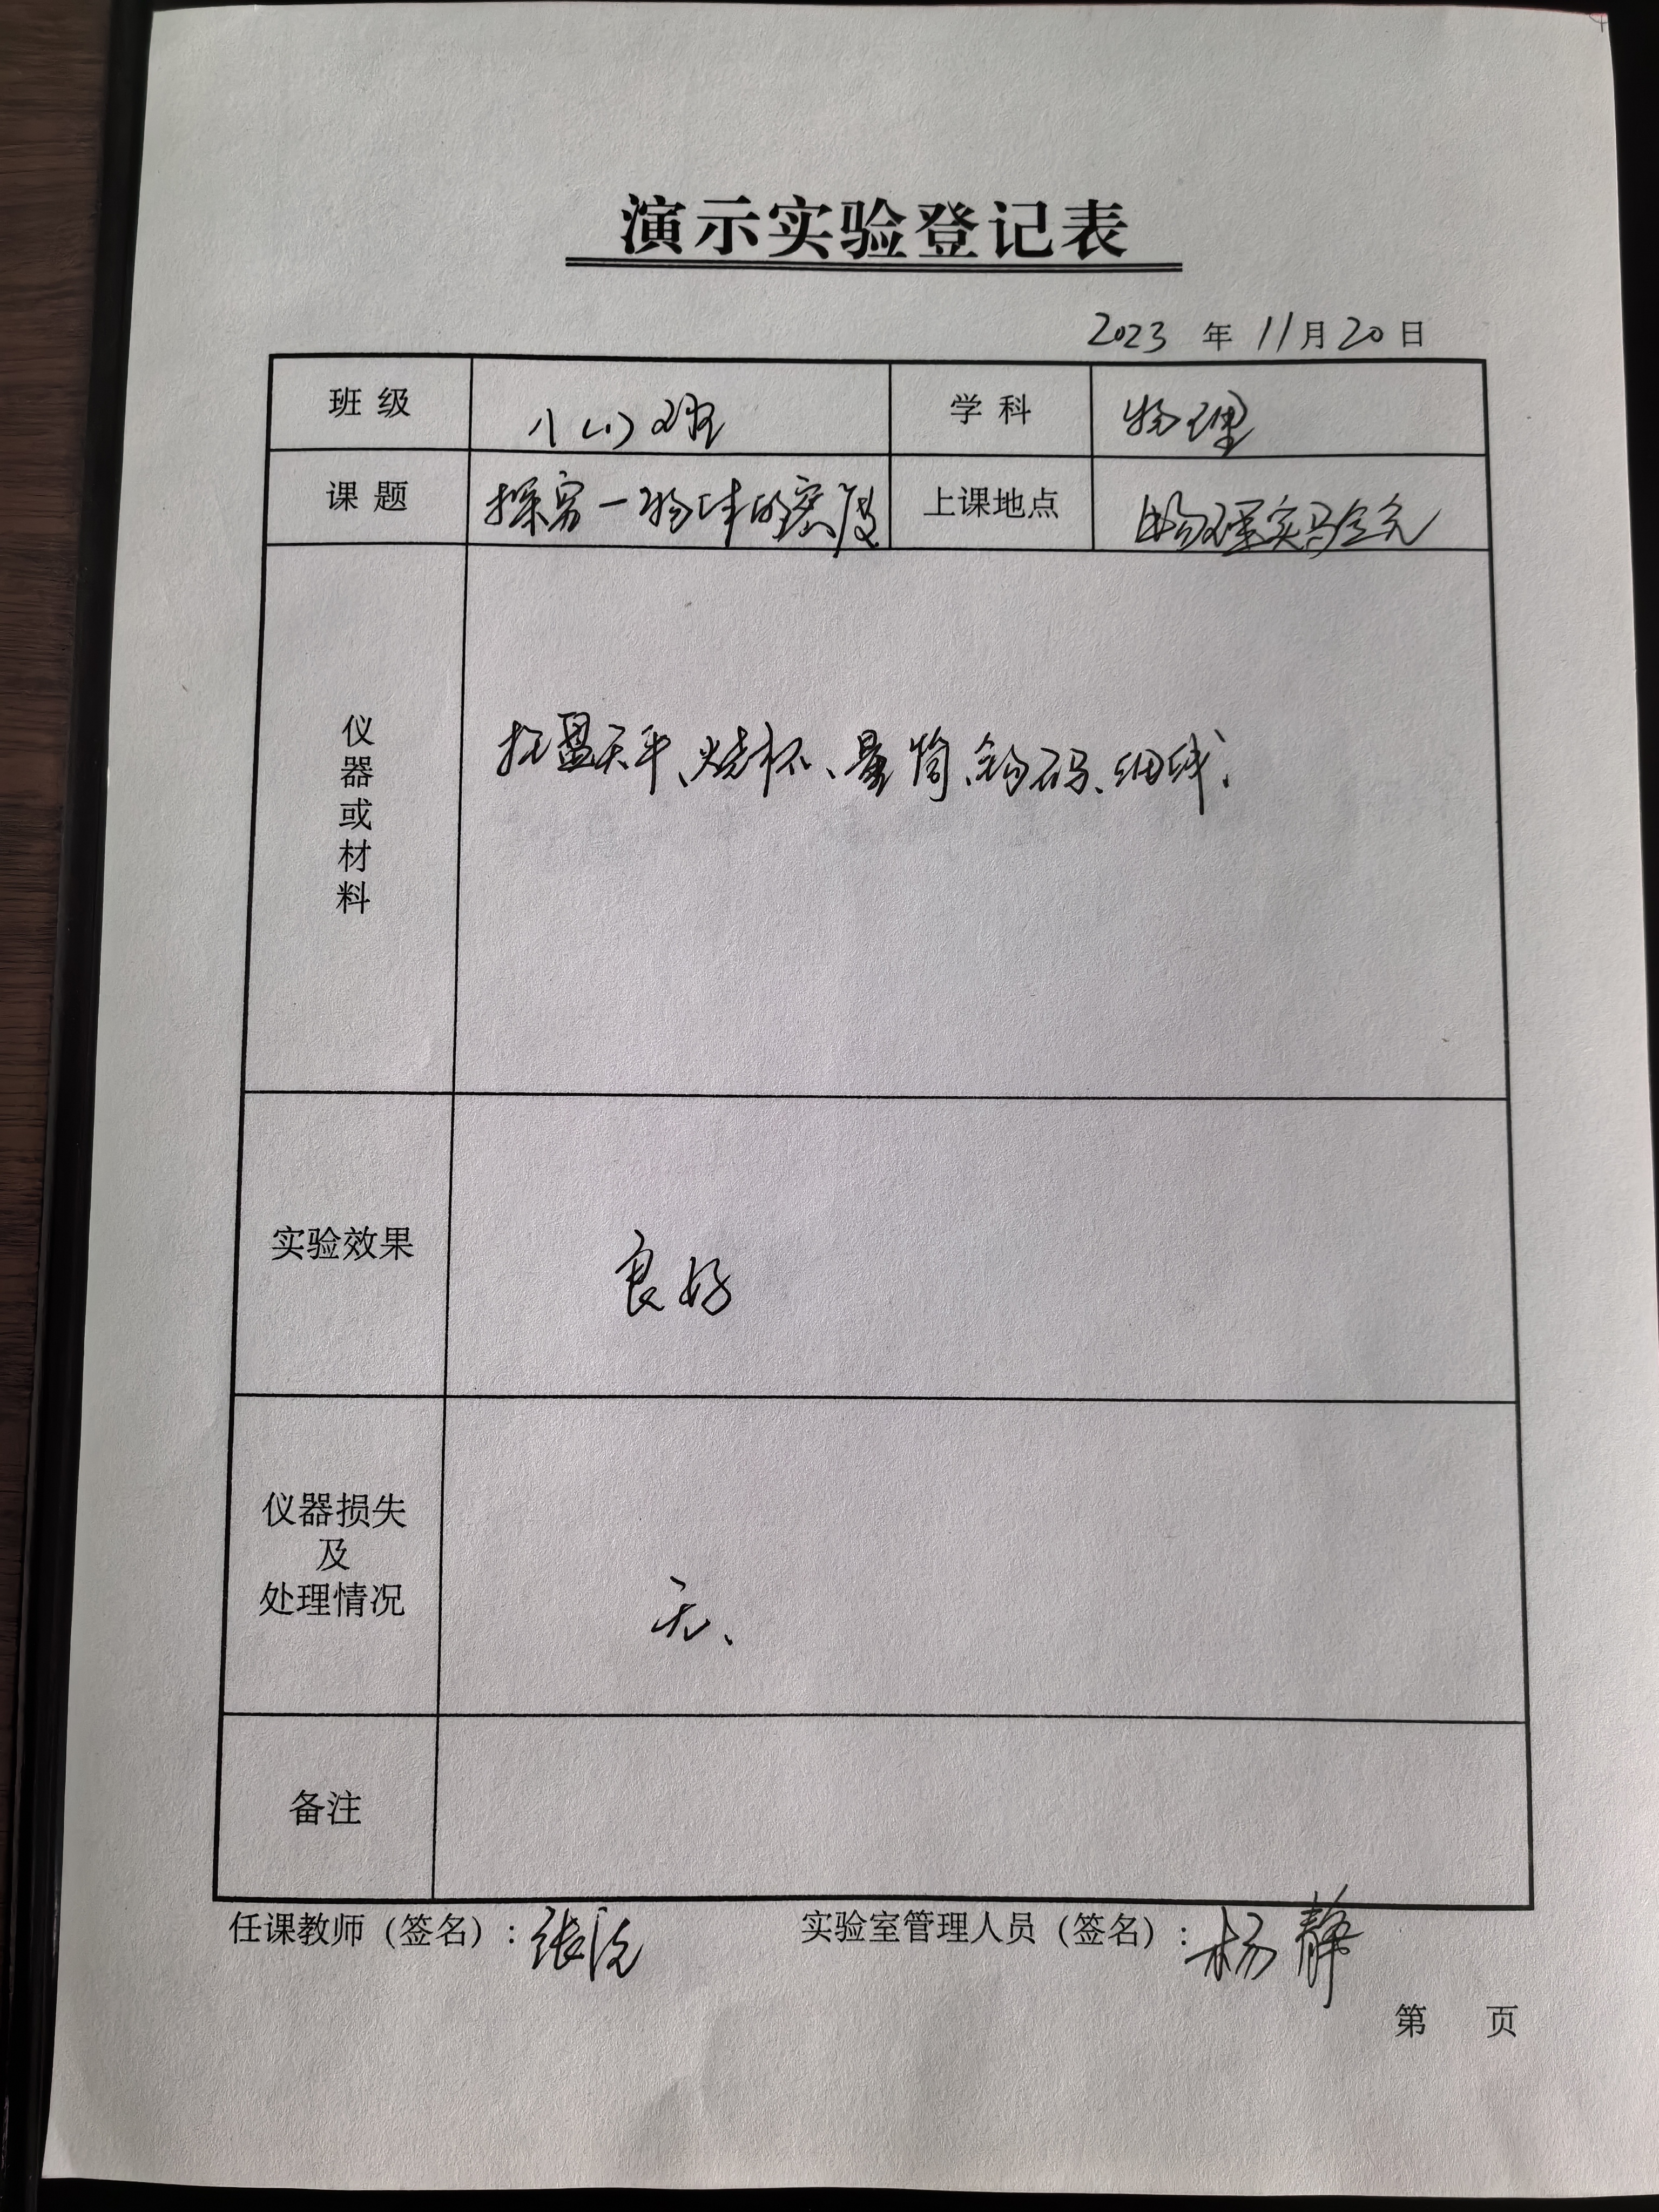 演示实验登记表
2023 年 11 月 20 日
班级 八(1)班 学科 物理
课题 探究一物体的密度 上课地点 物理实验室
仪器或材料
托盘天平、烧杯、量筒、钩码、细线、
实验效果 良好
仪器损失
及
处理情况
无、
备注
任课教师（签名）: 张 实验室管理人员（签名）: 杨静
第 页